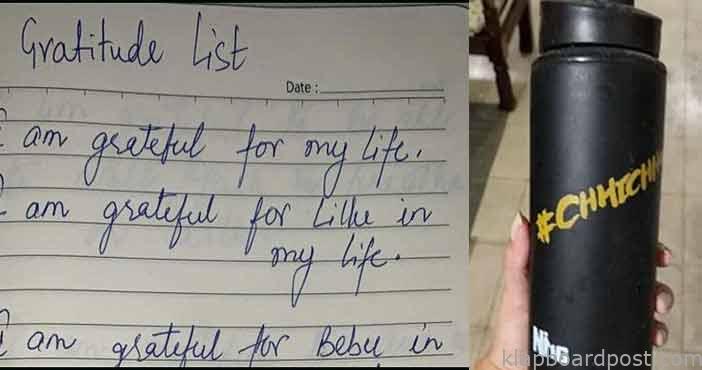 Gratitude List
Date :
I am grateful for my life.
I am grateful for Lillu in
my life.
I am grateful for Bebu in
#CHHICHH
klapboardpost.com